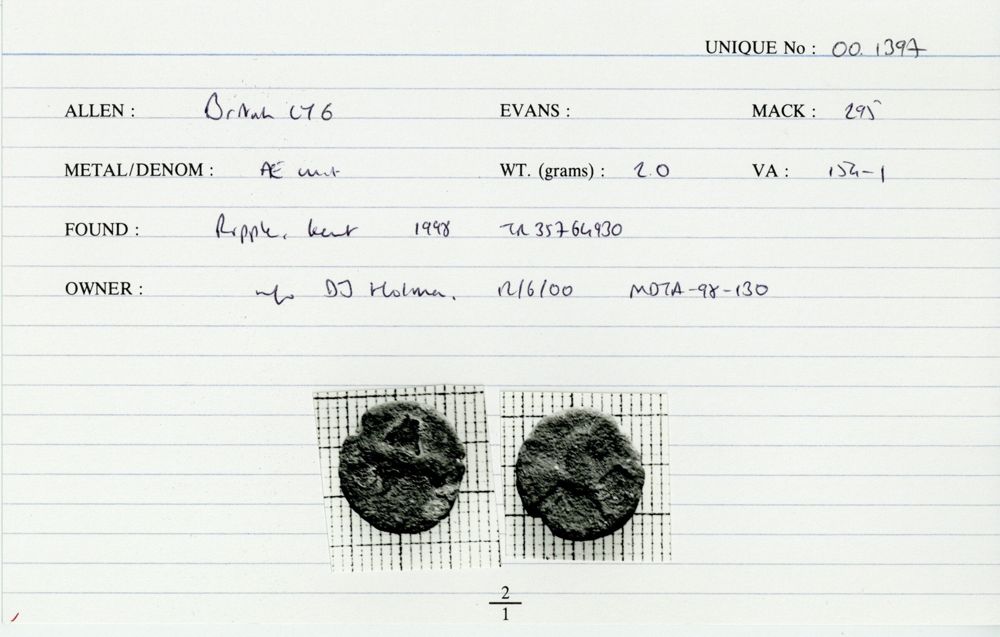 UNIQUE No : 00.1397
ALLEN : British LY6 EVANS : MACK : 295
METAL/DENOM : AE unit WT. (grams) : 2.0 VA : 154-1
FOUND : Ripple, Kent 1998 TR 35764930
OWNER : info DJ Holman, 12/6/00 MDTA-98-130
2
1